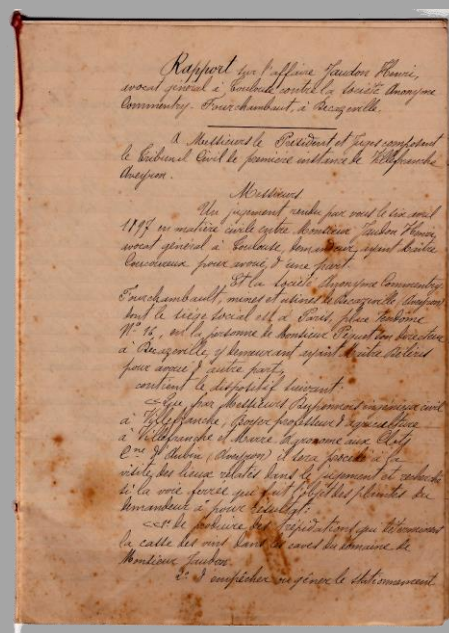 Rapport sur l'affaire Jaudon Henri,
avocat général à Toulouse contre la Société Anonyme
Commentry-Fourchambault, à Decazeville.
A Messieurs le Président et Juges composant
le Tribunal Civil de première instance de Villefranche
Aveyron.
Messieurs
Un jugement rendu par vous le six avril
1897 en matière civile entre Monsieur Jaudon Henri,
avocat général à Toulouse, demandeur, ayant Maître
pour avoué, d'une part.
Et la Société Anonyme Commentry
Fourchambault, mines et usines de Decazeville, (Aveyron)
dont le siège social est à Paris, place Vendôme
N° 16, en la personne de Monsieur son directeur
à Decazeville, y demeurant ayant Maître
pour avoué d'autre part,
contient le dispositif suivant
Que par Messieurs ingénieur civil
à Villefranche, professeur d'agriculture
à Villefranche et Marre Agronome aux
Cne d'Aubin (Aveyron) il sera procédé à la
visite des lieux relatés dans le jugement et recherché
si la voie ferrée qui fait l'objet des plaintes du
demandeur a pour résultat:
1° de produire des trépidations qui
la casse des vins dans les caves du domaine de
Monsieur Jaudon.
2° d'empêcher ou gêner le stationnement